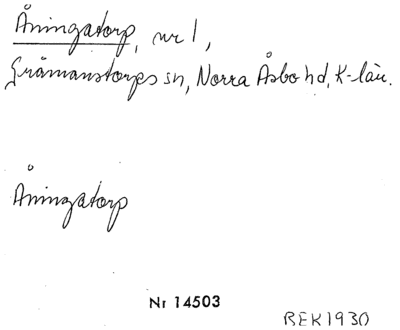 Åningatorp, nr 1,
Gråmanstorps sn, Norra Åsbo hd, K-län.
Åningatorp
Nr 14503
BEK1930